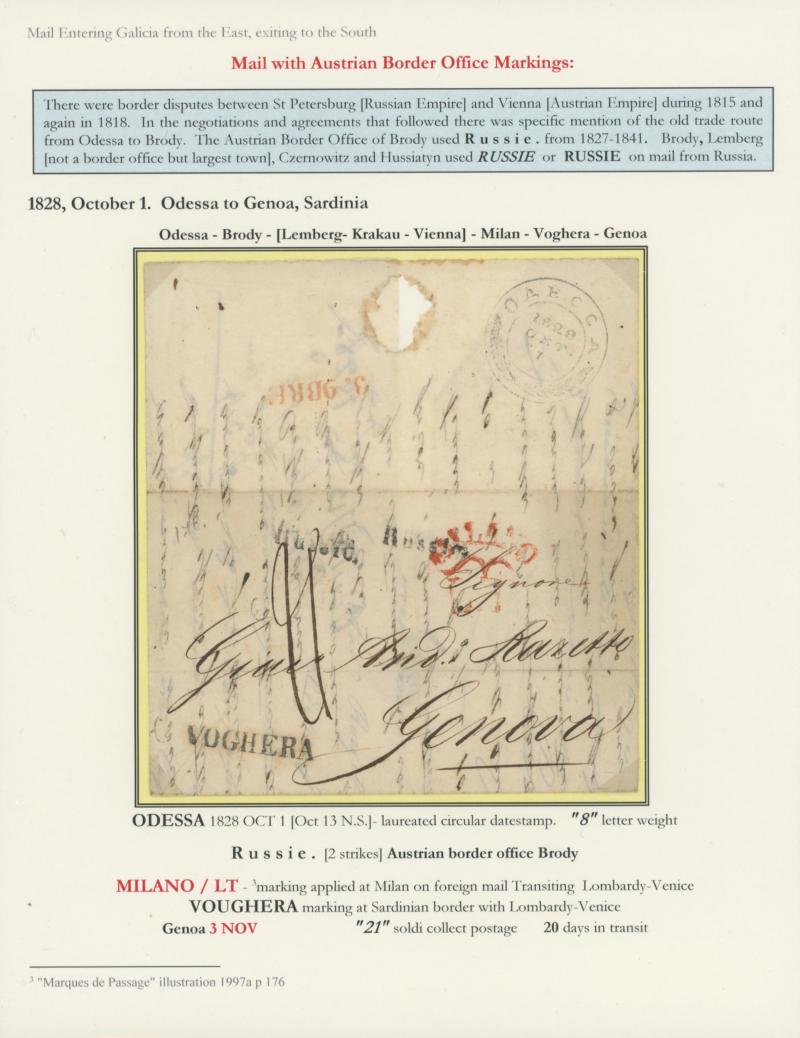 Mail Entering Galicia from the East, exiting to the South
Mail with Austrian Border Office Markings:
There were border disputes between St Petersburg [Russian Empire] and Vienna [Austrian Empire] during 1815 and
again in 1818. In the negotiations and agreements that followed there was specific mention of the old trade route
from Odessa to Brody. The Austrian Border Office of Brody used R u s s i e . from 1827-1841. Brody, Lemberg
[not a border office but largest town], Czernowitz and Hussiatyn used RUSSIE or RUSSIE on mail from Russia.
1828, October 1. Odessa to Genoa, Sardinia
Odessa - Brody - [Lemberg- Krakau - Vienna] - Milan - Voghera - Genoa
ОДЕССА
1828
ОКТ.
1
3. 9BRE
Russie.
Russie
MILANO
Signore
And.
Razetto
Genova
VOGHERA
ODESSA 1828 OCT 1 [Oct 13 N.S.]- laureated circular datestamp. "8" letter weight
R u s s i e . [2 strikes] Austrian border office Brody
MILANO / LT - 3marking applied at Milan on foreign mail Transiting Lombardy-Venice
VOUGHERA marking at Sardinian border with Lombardy-Venice
Genoa 3 NOV "21" soldi collect postage 20 days in transit
3 "Marques de Passage" illustration 1997a p 176